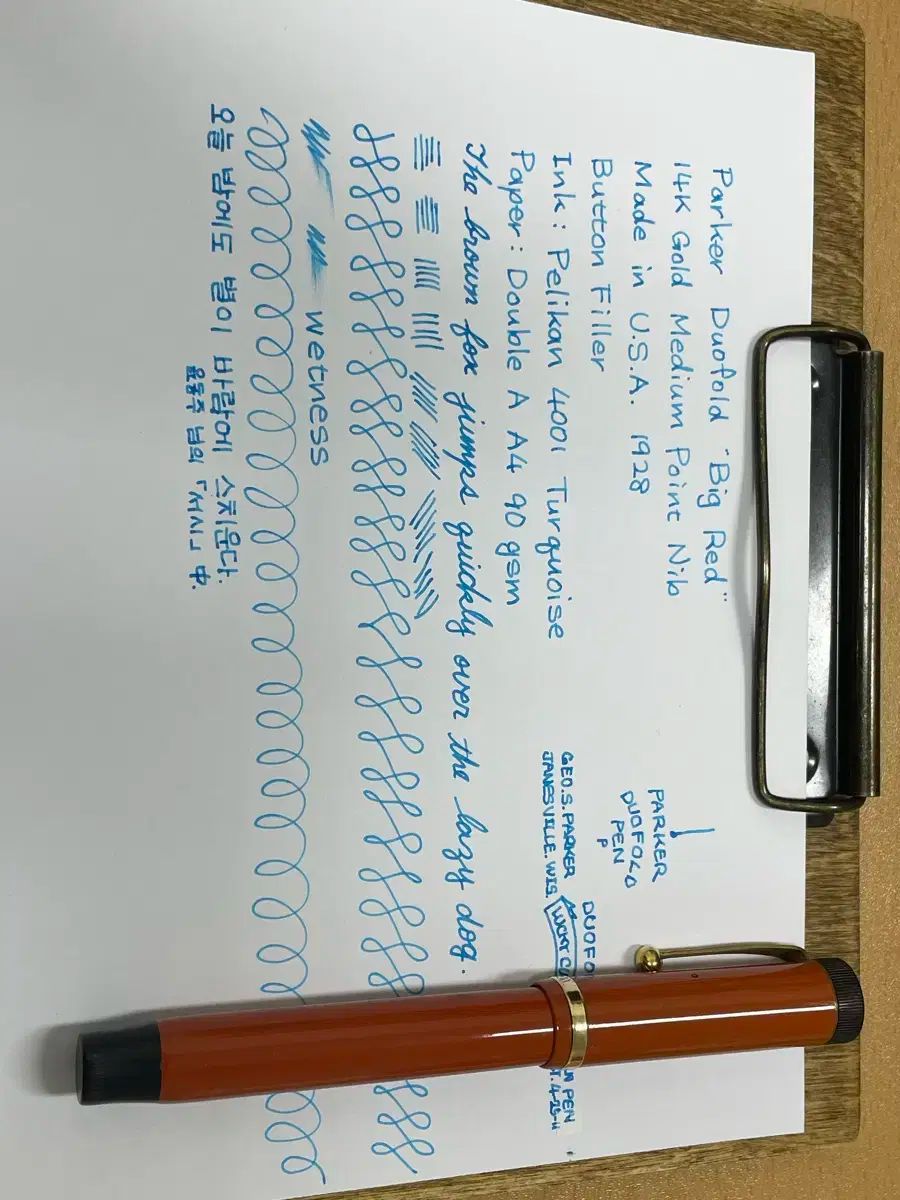 Parker Duofold "Big Red"
14K Gold Medium Point Nib
Made in U.S.A. 1928
Button Filler
Ink : Pelikan 4001 Turquoise
Paper : Double A A4 90 gsm
PARKER
DUOFOLD
PEN
P
DUOFO
GEO.S.PARKER
JANESVILLE.WIS.
PEN
The brown fox jumps quickly over the lazy dog.
wetness
오늘 밤에도 별이 바람에 스치운다.
윤동주 님의 「서시」 中.